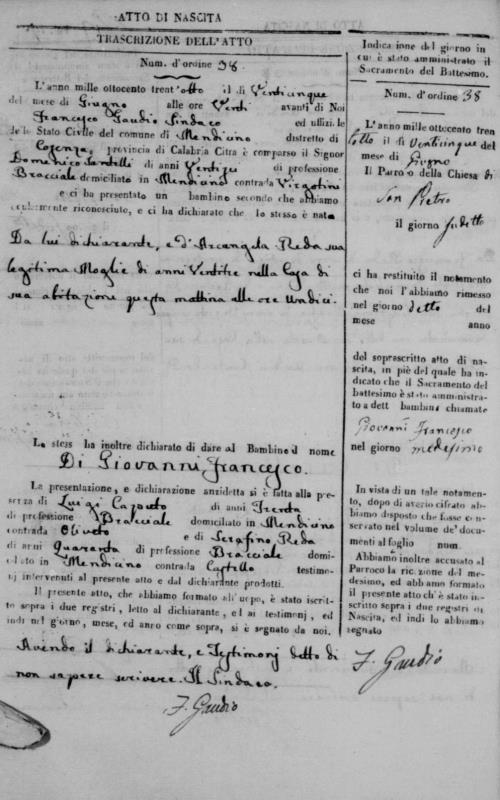 ATTO DI NASCITA
TRASCRIZIONE DELL'ATTO
Num. d'ordine 38.
L'anno mille ottocento trent'otto il dì Venticinque
del mese di Giugno alle ore Venti avanti di Noi
Francesco Gaudio Sindaco ed uffizi. le
dello Stato Civile del comune di Mendicino distretto di
Cosenza, provincia di Calabria Citra è comparso il Signor
Domenico Santelli di anni di professione
Bracciale domiciliato in Mendicino contrada
e ci ha presentato un bambino secondo che abbiamo
ocularmente riconosciuto, e ci ha dichiarato che lo stesso è nato
Da lui dichiarante, e d'Arcangela Reda sua
legitima Moglie di anni Ventitre nella Casa di
sua abitazione questa mattina alle ore Undici.
Lo stess ha inoltre dichiarato di dare al Bambino il nome
Di Giovanni Francesco.
La presentazione, e dichiarazione anzidetta si è fatta alla pre-
senza di Luigi Caputo di anni Trenta
di professione Bracciale domiciliato in Mendicino
contrada Oliveto e di Serafino Reda
di anni Quaranta di professione Bracciale domi-
ciliato in Mendicino contrada Castello testimo-
nj intervenuti al presente atto e dal dichiarante prodotti.
Il presente atto, che abbiamo formato all'uopo, è stato iscrit-
to sopra i due registri, letto al dichiarante, ed ai testimonj, ed
indi nel giorno, mese, ed anno come sopra, si è segnato da noi.
Avendo il dichiarante, e Testimonj detto di
non sapere scrivere. Il Sindaco.
F. Gaudio
Indica ione del giorno in
cui è stato amministrato il
Sacramento del Battesimo.
Num. d'ordine 38
L'anno mille ottocento tren
totto il dì Venticinque del
mese di Giugno
Il Parroco della Chiesa di
San Pietro
il giorno sudetto
ci ha restituito il notamento
che noi l'abbiamo rimesso
nel giorno detto del
mese anno
del soprascritto atto di na-
scita, in piè del quale ha in-
dicato che il Sacramento del
battesimo è stato amministra-
to a dett bambino chiamato
Giovanni Francesco
nel giorno medesimo
In vista di un tale notamen-
to, dopo di averlo cifrato ab-
biamo disposto che fosse con-
servato nel volume de' docu-
menti al foglio num.
Abbiamo inoltre accusato al
Parroco la ricezione del me-
desimo, ed abbiamo formato
il presente atto ch'è stato in-
scritto sopra i due registri di
Nascita, ed indi lo abbiamo
segnato
F. Gaudio